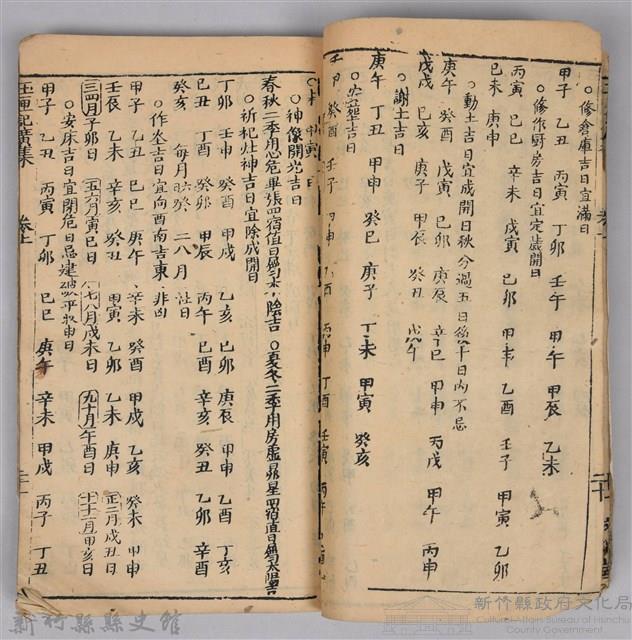 ○修倉庫吉日宜滿日
甲子 乙丑 丙寅 丁卯 壬午 甲午 甲辰 乙未
○修作厨房吉日宜定成開日
丙寅 己巳 辛未 戊寅 己卯 甲申 乙酉 壬子 甲寅 乙卯
己未 庚申
○動土吉日宜成開日秋分過五日後十日內不忌
庚午 癸酉 戊寅 己卯 庚辰 辛巳 甲申 丙戌 甲午 丙申
戊戌 己亥 庚子 甲辰 癸丑 戊午
○謝土吉日
庚午 丁丑 甲申 癸巳 庚子 丁未 甲寅 癸亥
○安葬吉日
壬申 癸酉 壬午 甲申 乙酉 丙申 丁酉 壬寅 丙午 己酉
○神像開光吉日
春秋二季用心危畢張四宿值日為太陰吉 ○夏冬二季用房虛昴星四宿值日為太陽吉
○祈祀灶神吉日宜除成開日
丁卯 壬申 癸酉 甲戌 乙亥 己卯 庚辰 甲申 乙酉 丁亥
己丑 丁酉 癸卯 甲辰 丙午 己酉 辛亥 癸丑 乙卯 辛酉
癸亥 每月 二八月 社日
○作灶吉日宜向西南吉東 非凶
甲子 乙丑 己巳 庚午 辛未 癸酉 甲戌 乙亥 癸未 甲申
壬辰 乙未 辛亥 癸丑 甲寅 乙卯 乙未 庚申
三四月子卯日 五六月寅巳日 七八月戌未日 九十月午酉日 十一十二月甲亥日 正二月戌丑日
○安床吉日宜開危日忌建破平收申日
甲子 乙丑 丙寅 丁卯 己巳 庚午 辛未 甲戌 丙子 丁丑
玉匣記廣集 卷上 二十一
新竹縣縣史館
新竹縣政府文化局
Cultural Affairs Bureau of Hsinchu
County Government